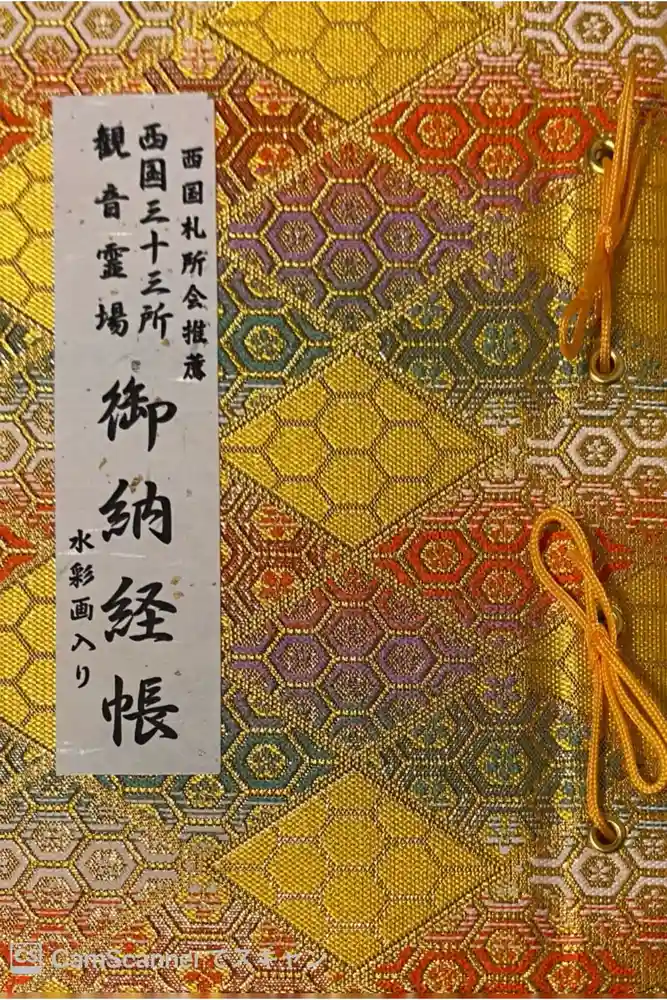 西国札所会推薦
西国三十三所
観音霊場
御納経帳
水彩画入り
CS CamScannerでスキャン